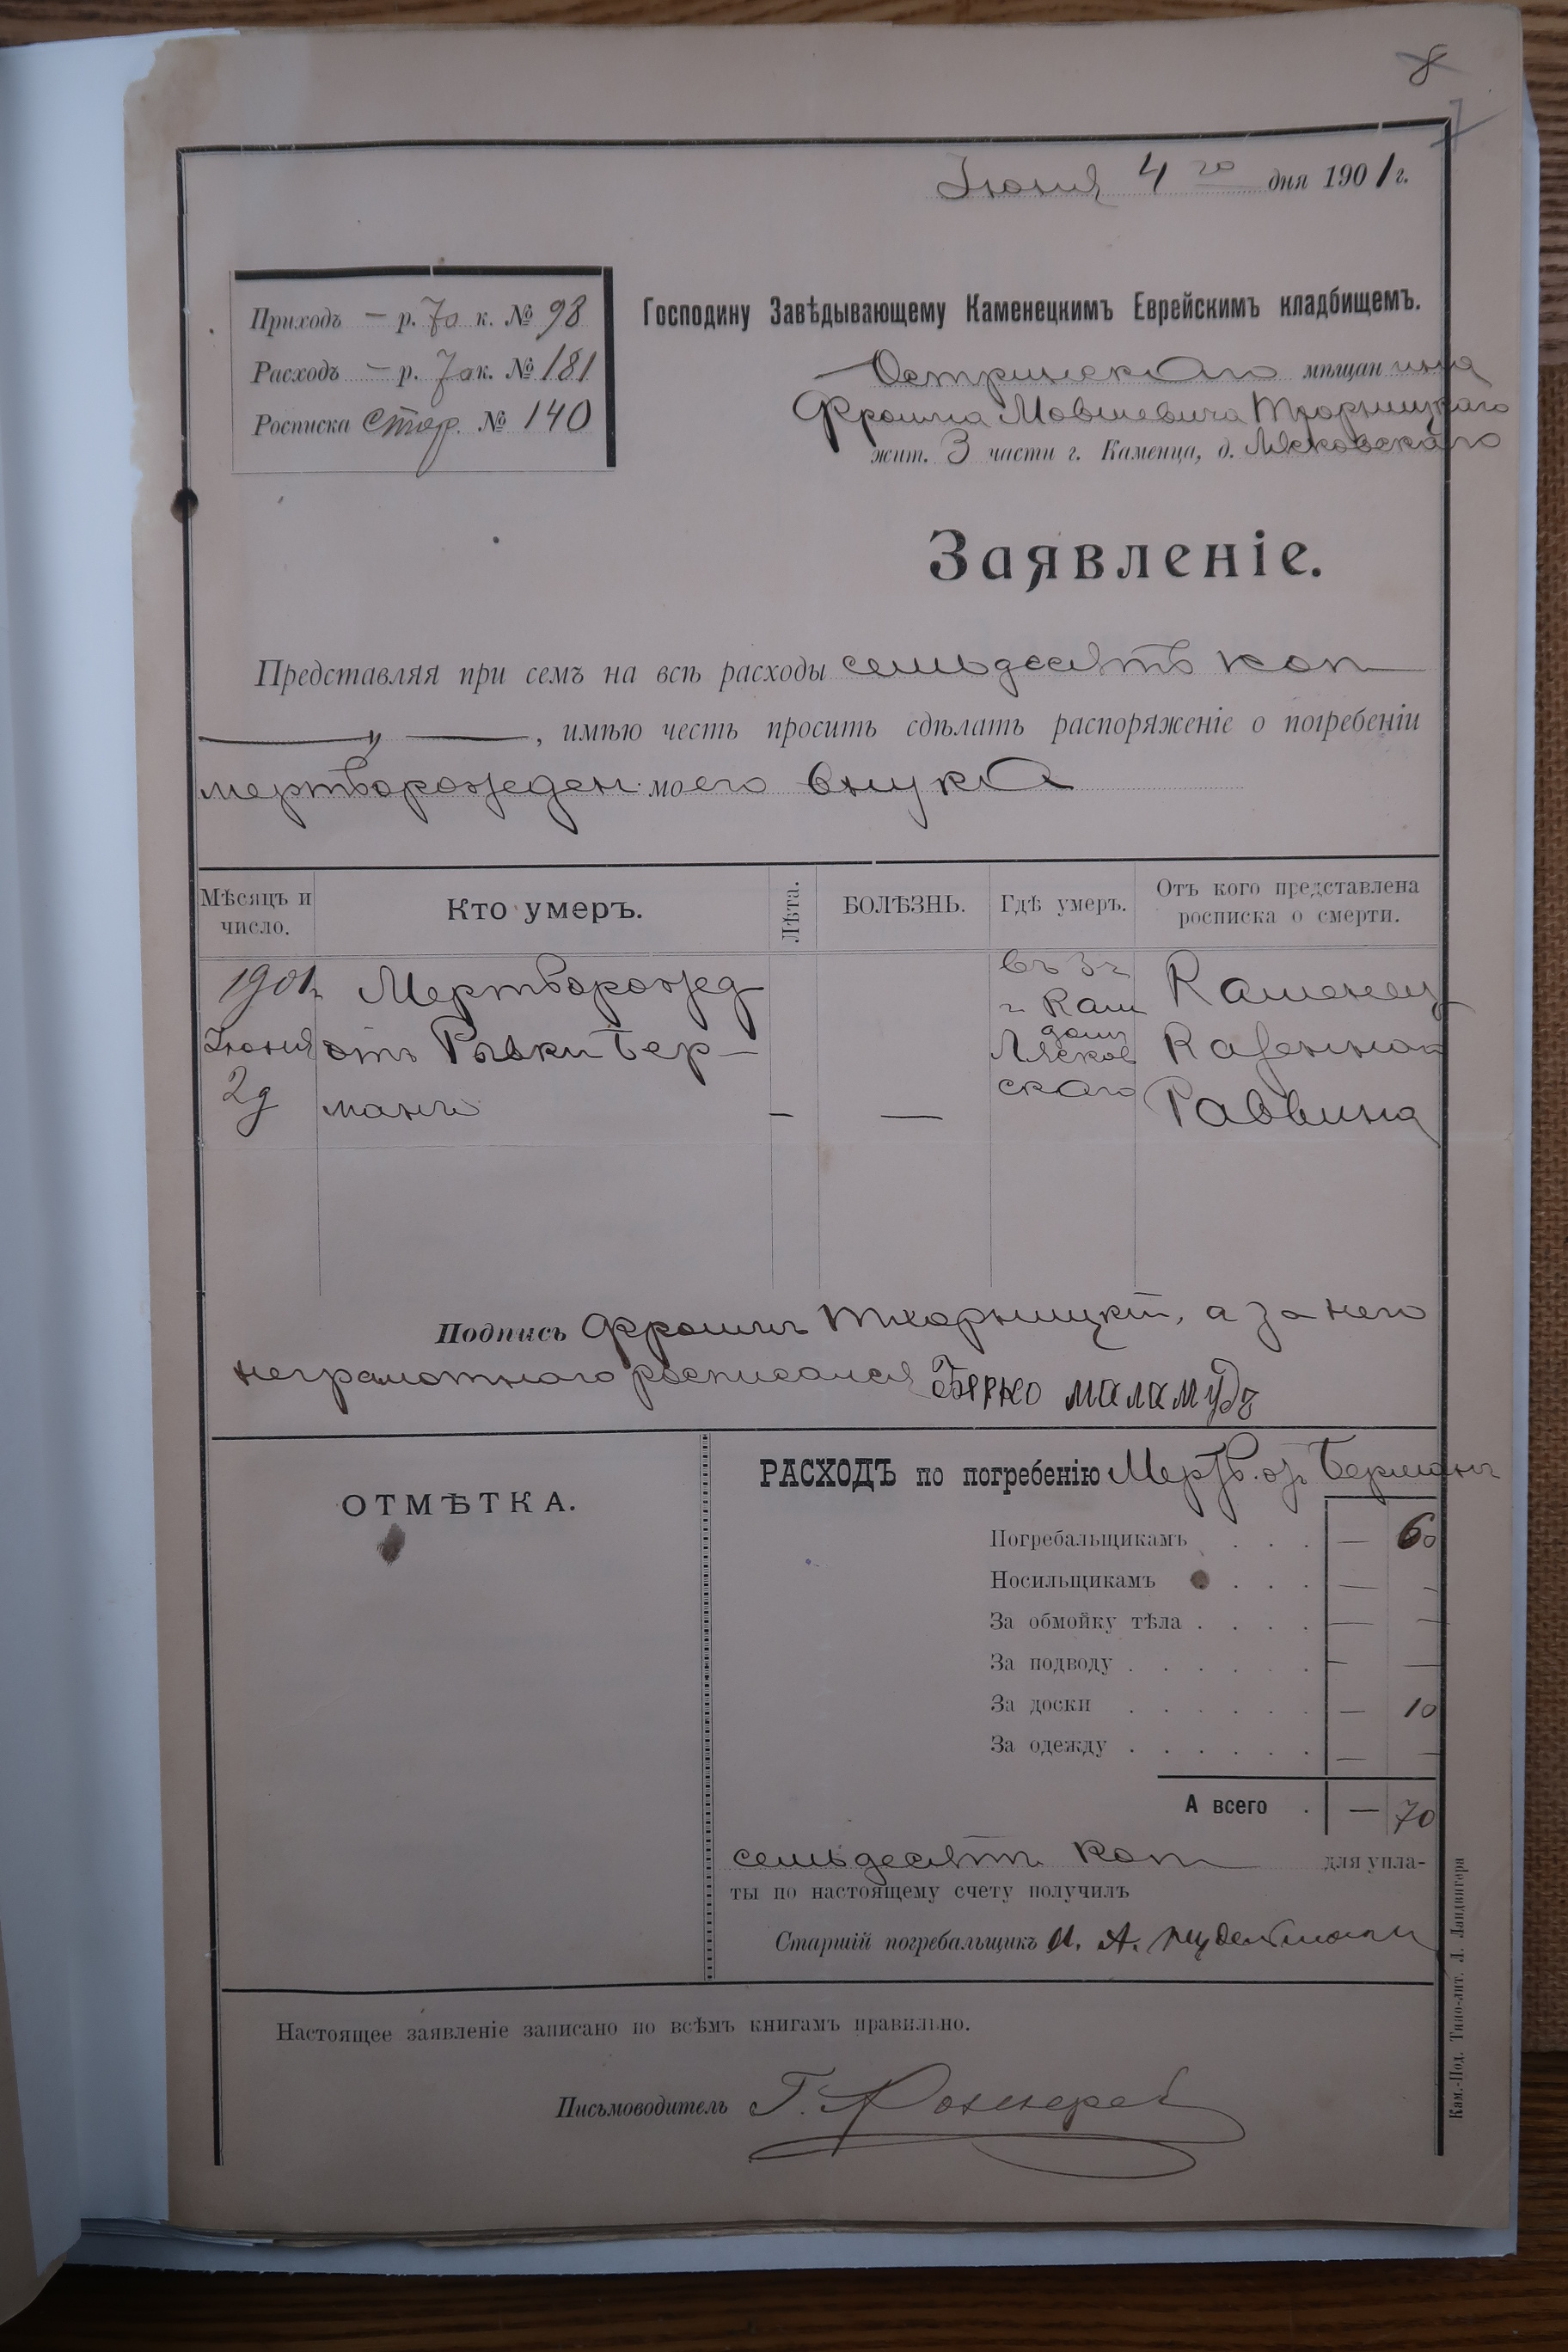 8
7
Іюня 4 го дня 1901 г.
Приходъ — р. 70 к. № 98
Расходъ — р. 70 к. № 181
Росписка стор. № 140
Господину Завѣдывающему Каменецкимъ Еврейскимъ кладбищемъ.
мѣщанина
Фроима Мовшевича Тхорницкаго
жит. 3 части г. Каменца, д. Лясковскаго
Заявленіе.
Представляя при семъ на всѣ расходы семьдесятъ коп
, имѣю честь просить сдѣлать распоряженіе о погребеніи
мертворожден. моего внука
Мѣсяцъ и число.
Кто умеръ.
Лѣта.
БОЛѢЗНЬ.
Гдѣ умеръ.
Отъ кого представлена росписка о смерти.
1901 г.
Іюня
2 д
Мертворожд
отъ Рывки Бер-
манъ
—
—
въ 3 ч
г Кам
домъ
Лясков
скаго
Каменец
Казеннаго
Раввина
Подпись Фроимъ Тхорницкій, а за него
неграмотнаго росписался Берко маламудъ
ОТМѢТКА.
РАСХОДЪ по погребенію Мертв. отъ Берманъ
Погребальщикамъ . . . — 60
Носильщикамъ . . . — —
За обмойку тѣла . . . . — —
За подводу . . . . . . — —
За доски . . . . . . — 10
За одежду . . . . . . — —
А всего . — 70
семьдесятъ коп для упла-
ты по настоящему счету получилъ
Старшій погребальщикъ И. А.
Настоящее заявленіе записано по всѣмъ книгамъ правильно.
Письмоводитель Г.
Кам.-Под. Типо-лит. Л. Ландвигера